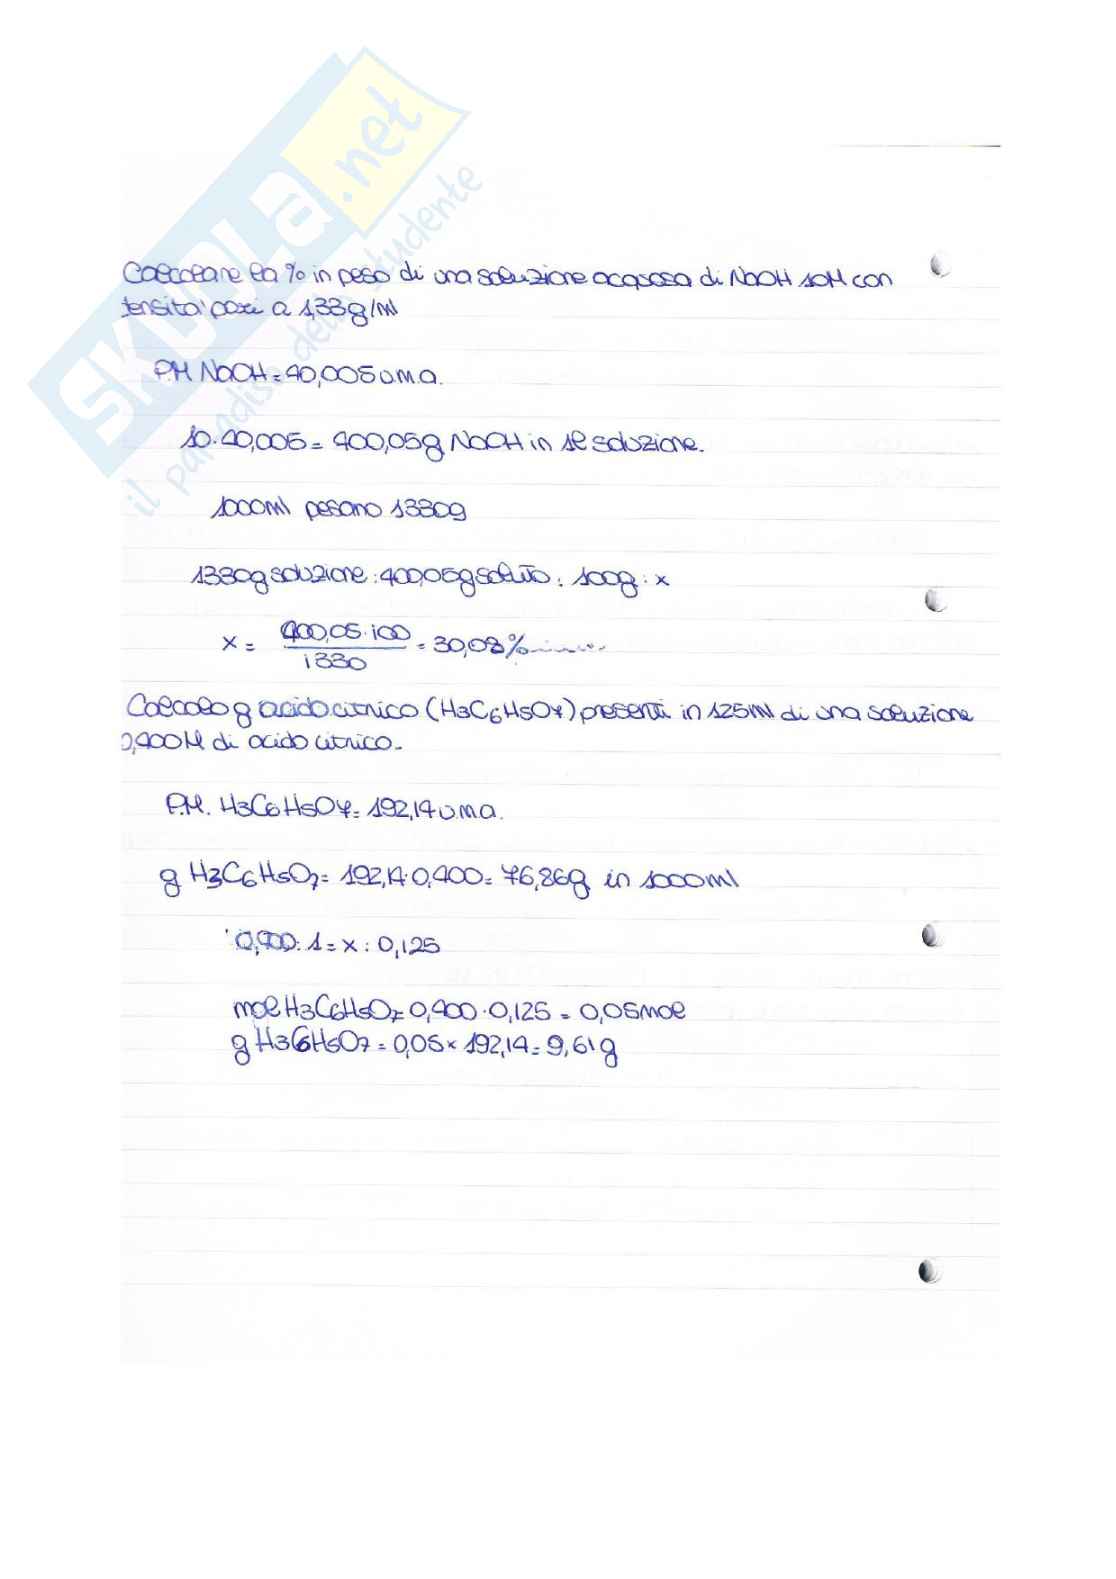 SKUOLA.net
il paradiso dello studente
Calcolare la % in peso di una soluzione acquosa di NaOH 10M con
densità pari a 1,33g/ml
P.M NaOH = 40,005 u.m.a.
10·40,005 = 400,05g NaOH in 1l soluzione.
1000ml pesano 1330g
1330g soluzione : 400,05g soluto = 100g : x
x = 400,05·100 / 1330 = 30,08%
Calcolo g acido citrico (H3C6H5O7) presenti in 125ml di una soluzione
0,400M di acido citrico.
P.M. H3C6H5O7 = 192,14 u.m.a.
g H3C6H5O7 = 192,14·0,400 = 76,86g in 1000ml
0,400 : 1 = x : 0,125
mol H3C6H5O7 = 0,400·0,125 = 0,05mol
g H3C6H5O7 = 0,05 x 192,14 = 9,61g